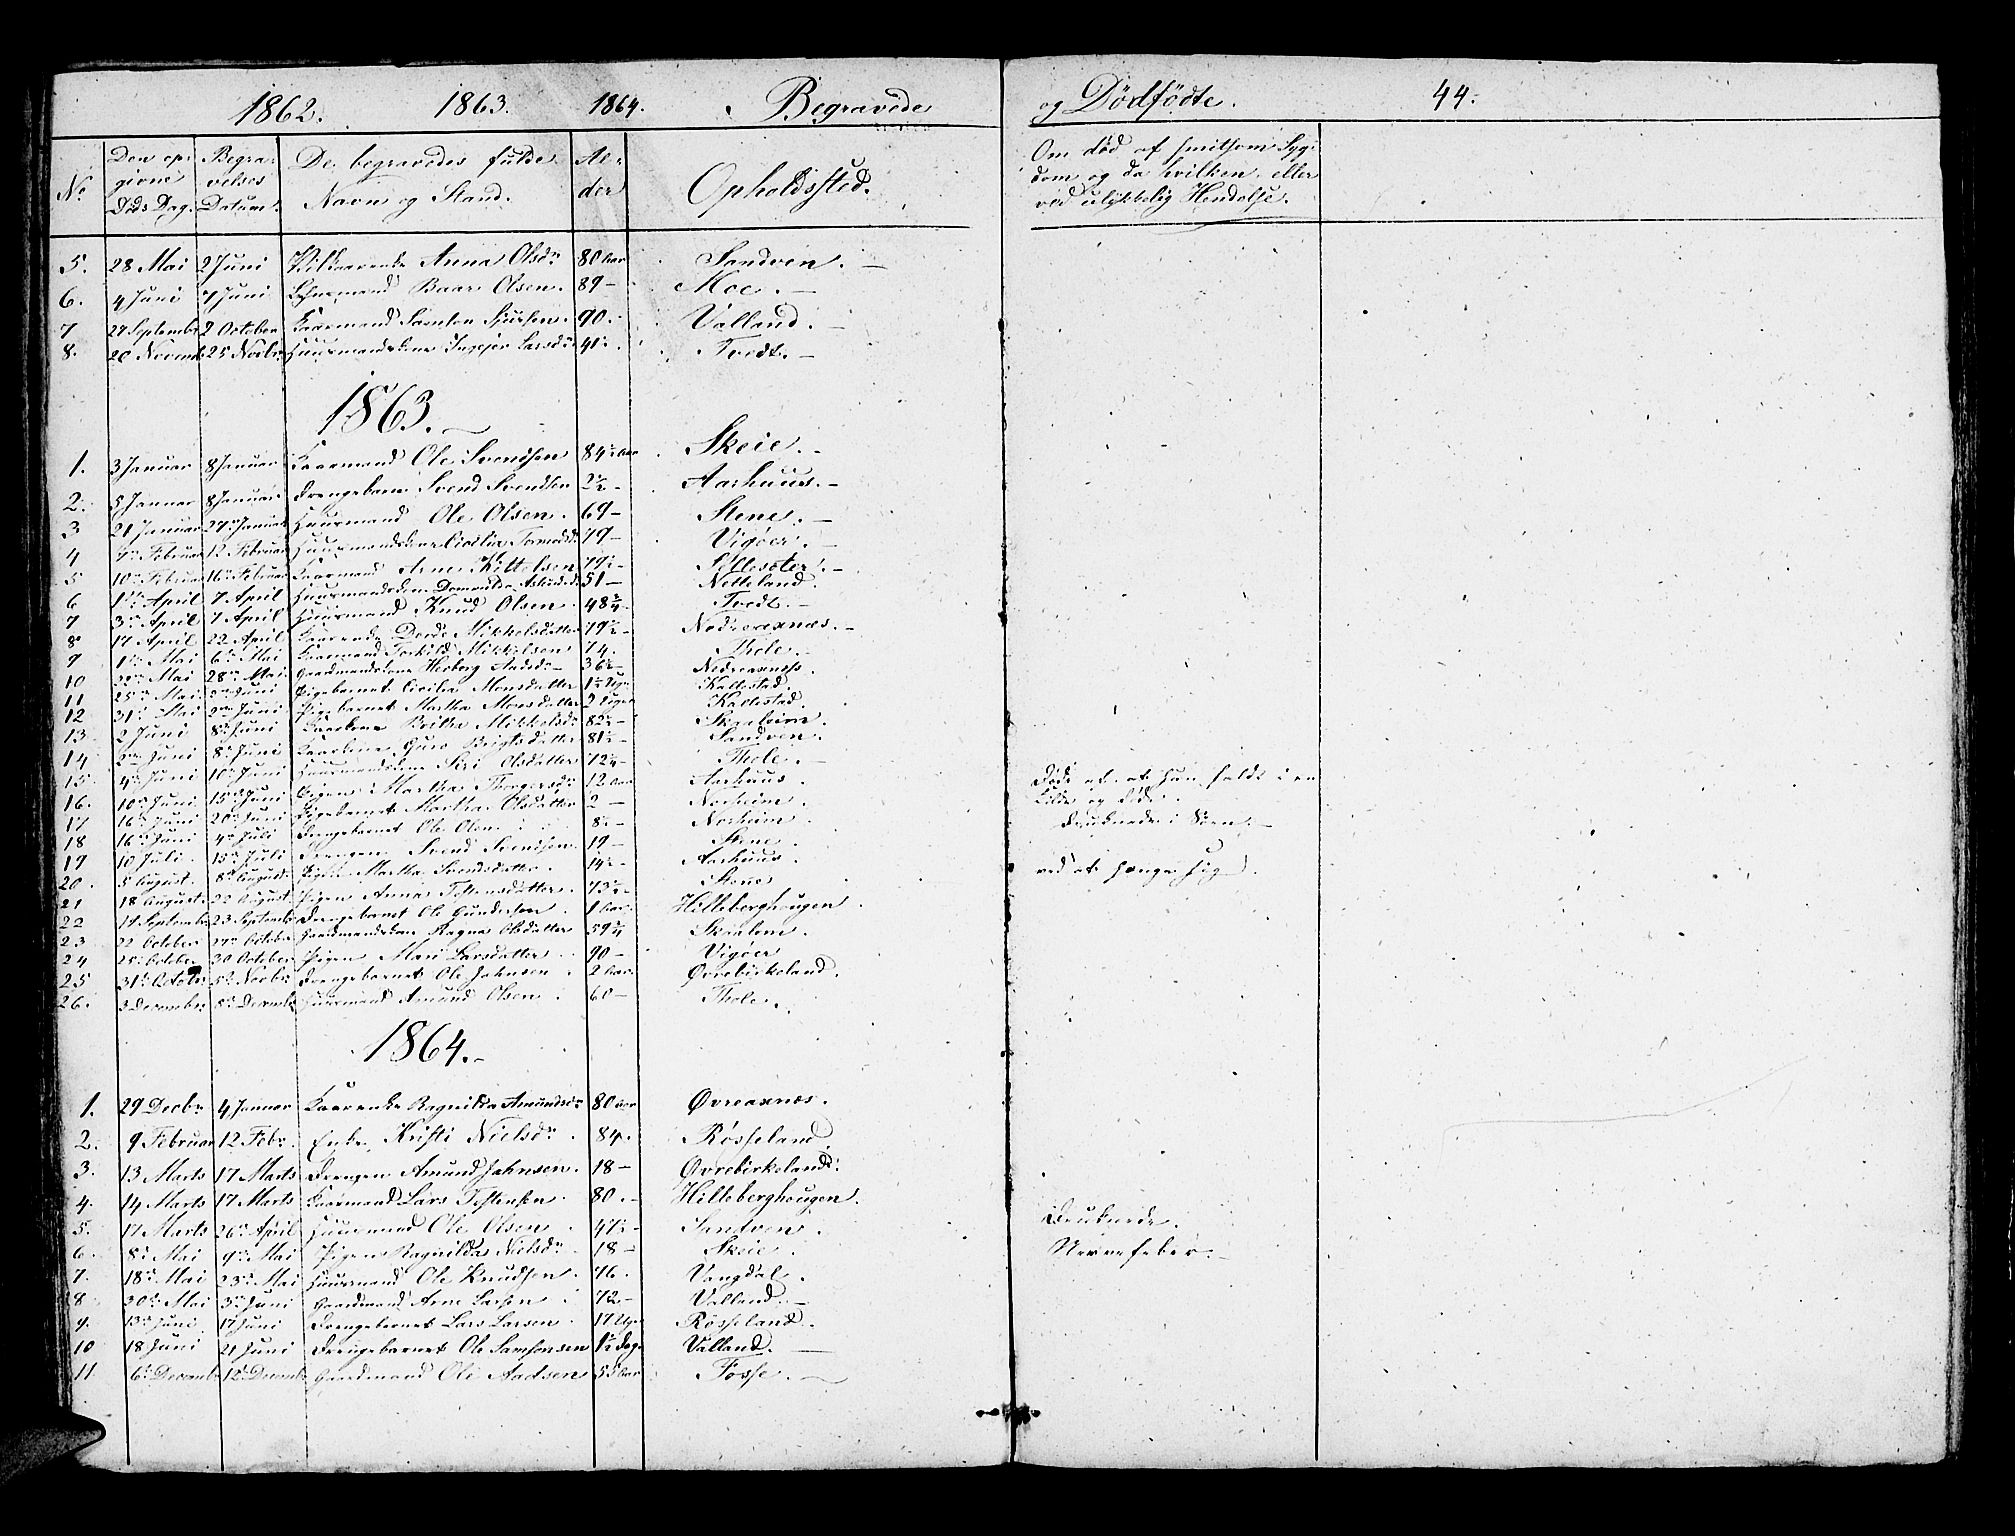 1862. 1863. 1864. Begravede og Dødfødte. 44.
No Den op- givne Døds Dag. Begra- velses Datum. De begravedes fulde Navn og Stand. Al- der Opholdssted. Om død af smitsom Syg- dom og da hvilken, eller ved ulykkelig Hendelse.
5. 28 Mai 2 Juni Anna Olsdr 80 Aar Sandven.
6. 4 Juni 7 Juni Baar Olsen. 89 - Moe.
7 27 September 2 October Kaarmand Samson Sjursen. 90. Valland.
8. 20 Novemb. 25 Novbr Huusmandskone Ingejer Larsdr 41½. Tvedt.
1863.
1. 3 Januar 8 Januar Kaarmand Ole Svendsen 84½ Aar Skeie.
2. 5 Januar 8 Januar Drengebarn Svend Svendsen 2½ - Aarhuus.
3 21 Januar 27 Januar Huusmand Ole Olsen. 69 - Stene.
4 7 Februar 12 Februar Huusmandskone Tormodsdr 79 - Vigøer.
5 10 Februar 16 Februar Kaarmand Arne Kittelsen 79½ -
6 1 April 7 April Huusmandskone 51 - Netteland.
7 3 April 7 April Huusmand Knud Olsen. 48¾ Tvedt.
8 17 April 22 April Kaarenke Dorde Mikkelsdatter 79½ - Nedreaxnæs.
9 1 Mai 6 Mai Kaarmand Torkild Mikkelsen 74. Thole.
10 22 Mai 28 Mai Gaardmandskone Herborg Aadsdr 36½ - Nedreaxnæss.
11 25 Mai 2 Juni Pigebarnet Cicilia Monsdatter 1½ Uge Kaltestad.
12 31 Mai 2 Juni Pigebarnet Martha Monsdatter 2 Uger Kaltestad.
13 2 Juni 8 Juni Kaarkone Brita Mikkelsdr 82½ - Skaaleim.
14 2 Juni 8 Juni Kaarkone Guro Brigtsdatter 81½ - Sandven.
15. 4 Juni 10 Juni Huusmandskone Siri Olsdatter 72¼ - Thole.
16. 10 Juni 15 Juni Pigen Martha Thorgersdr 12 Aar Aarhuus. Døde af at hun faldt i en Kilde og døde.
17 16 Juni 20 Juni Pigebarnet Martha Olsdatter 2 - Norheim.
18 16 Juni 4 Juli Drengebarnet Ole Olsen. 8½ - Norheim. Druknede i Søen.
19 10 Juli. 15 Juli Drengen Svend Svendsen 19 - Stene
20. 5 August. 8 August Pigen Martha Svendsdatter. 14½ - Aarhuus. ved at hænge sig.
21 18 August. 22 August Pigen Anna Tostensdatter. 73½ - Stene
22 19 September 23 September Drengebarnet Ole Gundersen 1 Aar. Hilleberghougen.
23 22 October 27 October Gaardmandskone Ragna Olsdatter 59¾ Skaalem.
24 25 October 30 October Pigen Mari Larsdatter. 90 - Vigøer
25 31 October 5 Novbr Drengebarnet Ole Johnsen 2 Aar. Øvrebirkeland.
26. 3 December 8 Decembr Huusmand Amund Olsen. 60 - Thole.
1864.
1. 29 Decbr 4 Januar Kaarenke Ragnilda Amundsdr 80 Aar Øvreaxnæs.
2. 9 Februar 12 Febr. Enke Kristi Nielsdr 84. Røsseland
3. 13 Marts 17 Marts Drengen Amund Johnsen. 18 - Øvrebirkeland.
4. 14 Marts 17 Marts Kaarmand Lars Tostensen. 80. - Hilleberghougen.
5. 17 Marts 26 April Huusmand Ole Olsen 47½ - Sandven. Druknede.
6. 8 Mai 9 Mai Pigen Ragnilda Nielsdr 18 - Skeie. Nervefeber.
7. 18 Mai 23 Mai Huusmand Ole Knudsen. 76. Vangdal.
8 30 Mai 3 Juni Gaardmand Arne Larsen 72 - Valland.
9. 13 Juni 17 Juni Drengebarnet Lars Larsen. 17 Uger Røsseland.
10 18 Juni 21 Juni Drengebarnet Ole Samsonsen 1½ Dag. Valland.
11 6 Decembr 12 Decembr Gaardmand Ole Aadsen 55 Aar Fosse.